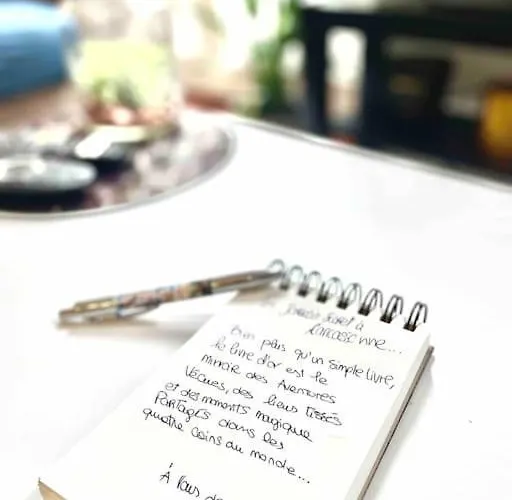 à
Bien plus qu'un simple livre,
le livre d'or est le
miroir des Aventures
Vécues, des liens tissés
et des moments magique
Partagés dans les
quatre coins du monde...
À